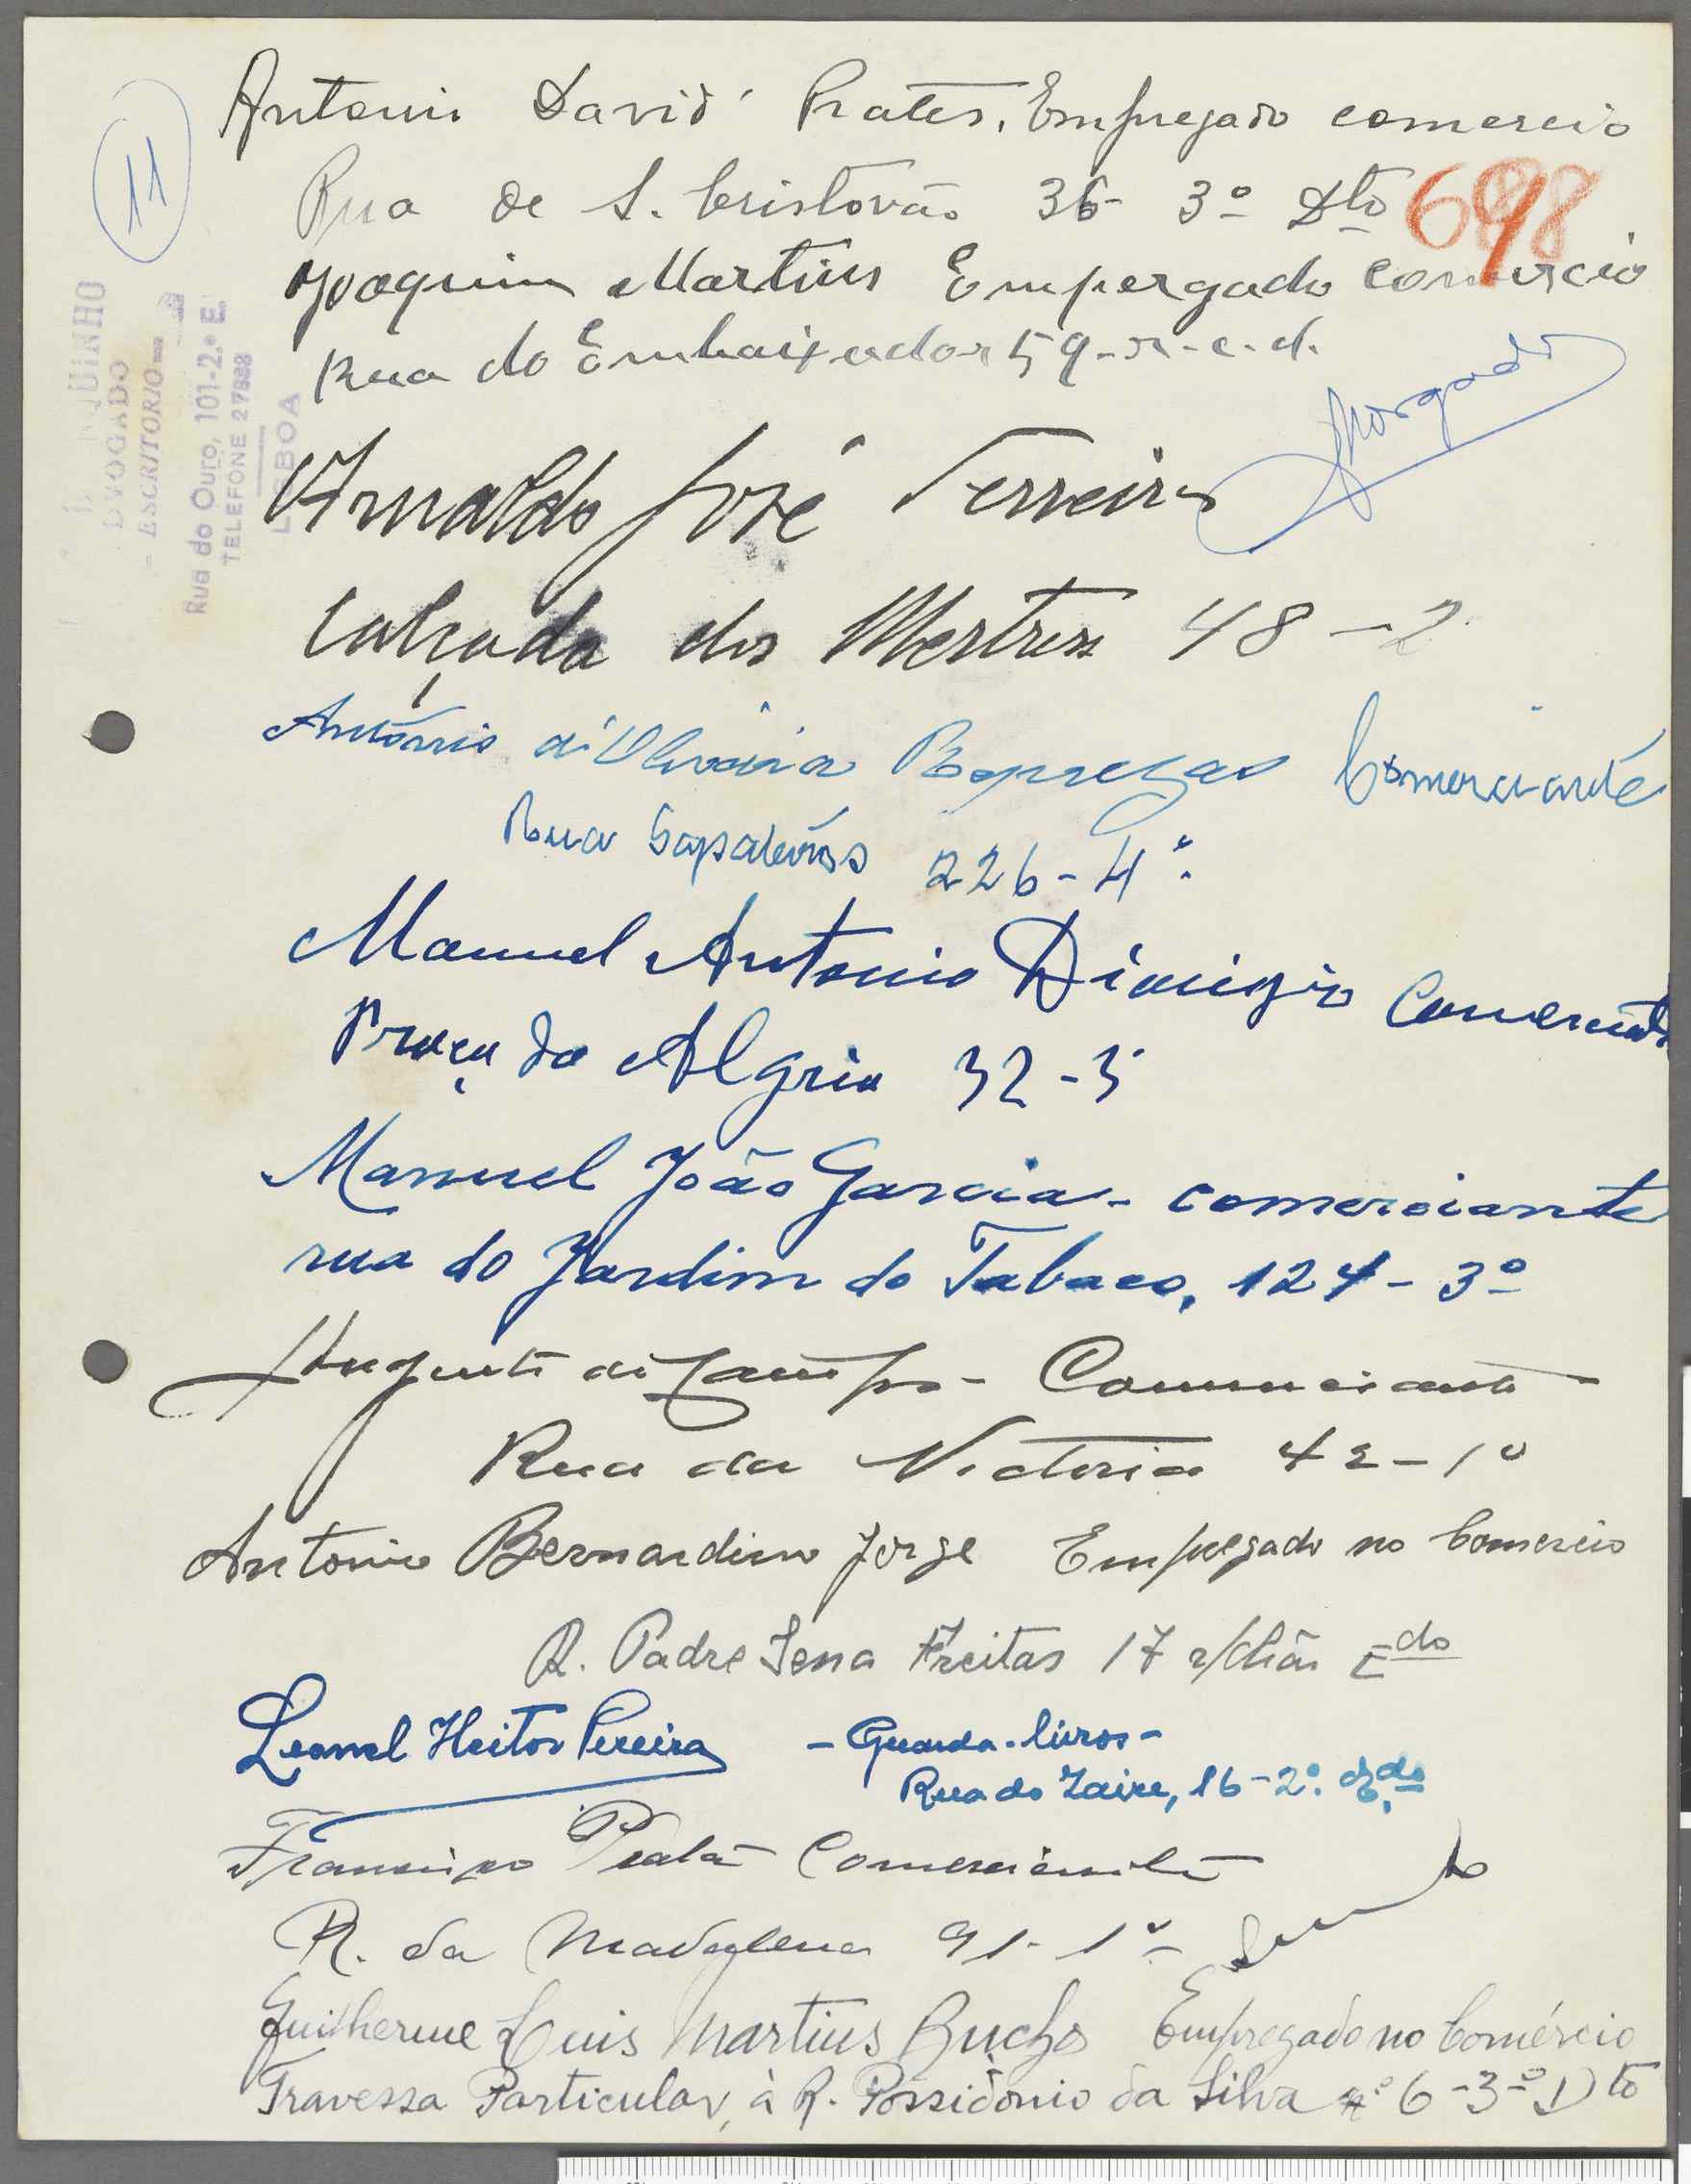 11
Antonio David Prates, Empregado comercio
Rua de S. Cristovão 36- 3º Dto
698
Joaquim Martins Empergado comercio
Rua do Embaixador 59-r-c.d.
Morgado
Arnaldo José Ferreira
Calçada dos Mestres 48-2
António d'Oliveira Comerciante
Rua Sapateiros 226-4º
Manuel Antonio Dionizio Comerciante
Praça da Algria 32-5
Manuel João Garcia - comerciante
rua do Jardim do Tabaco, 124- 3º
Augusto de Campos - Comerciante
Rua da Victoria 42-1º
Antonio Bernardino Jorge Empregado no Comercio
R. Padre Sena Freitas 17 r/chão Edo
Leonel Heitor Pereira - Guarda-livros-
Rua do Zaire, 16-2º. Edo
Francisco Prata Comerciante
R. da Madalena 91-1º
Guilherme Luis Martins Buchs Empregado no Comércio
Travessa Particular, à R. Possidónio da Silva nº 6-3º Dto
DVOGADO
= ESCRITORIO =
Rua do Ouro, 101-2.º E.
TELEFONE 27888
LISBOA